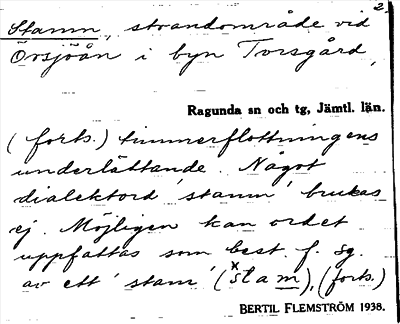 2.
Stamn, strandområde vid
Örsjöån i byn Torsgård,
Ragunda sn och tg, Jämtl. län.
(forts.) timmerflottningens
underlättande. Något
dialektord 'stamn' brukas
ej. Möjligen kan ordet
uppfattas som best. f. sg.
av ett 'stam' (*stam), (forts.)
BERTIL FLEMSTRÖM 1938.